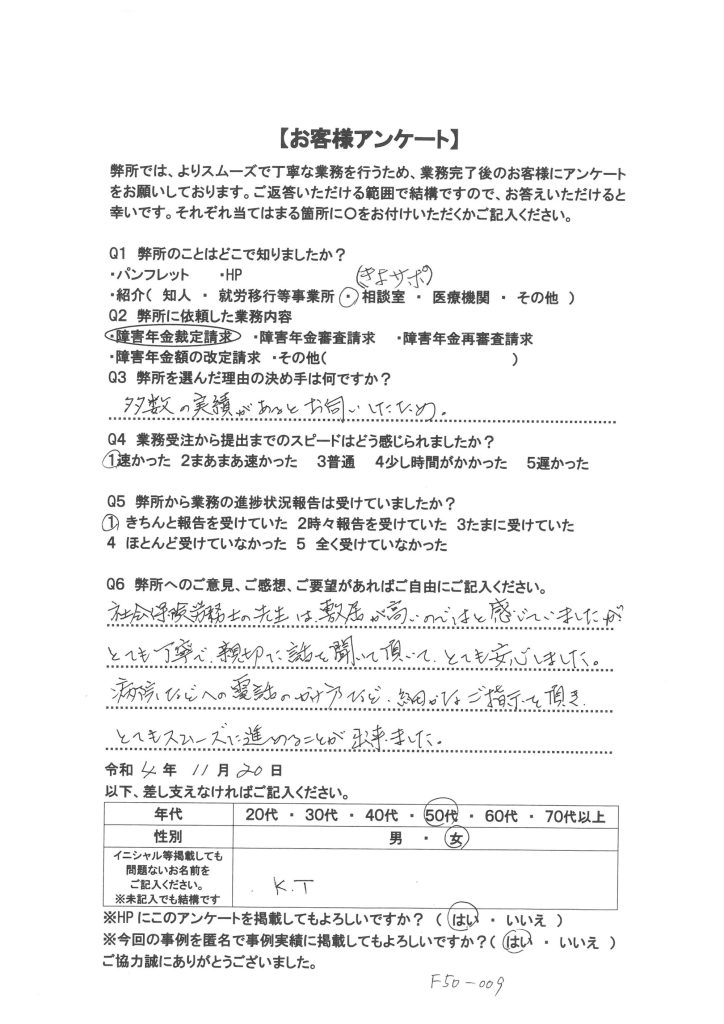 【お客様アンケート】
弊所では、よりスムーズで丁寧な業務を行うため、業務完了後のお客様にアンケート
をお願いしております。ご返答いただける範囲で結構ですので、お答えいただけると
幸いです。それぞれ当てはまる箇所に〇をお付けいただくかご記入ください。
Q1 弊所のことはどこで知りましたか？
・パンフレット ・HP
(きよサポ)
・紹介( 知人 ・ 就労移行等事業所 ・ 相談室 ・ 医療機関 ・ その他 )
Q2 弊所に依頼した業務内容
・障害年金裁定請求 ・障害年金審査請求 ・障害年金再審査請求
・障害年金額の改定請求 ・その他( )
Q3 弊所を選んだ理由の決め手は何ですか？
多数の実績があるとお伺いしたため。
Q4 業務受注から提出までのスピードはどう感じられましたか？
1速かった 2まあまあ速かった 3普通 4少し時間がかかった 5遅かった
Q5 弊所から業務の進捗状況報告は受けていましたか？
1 きちんと報告を受けていた 2時々報告を受けていた 3たまに受けていた
4 ほとんど受けていなかった 5 全く受けていなかった
Q6 弊所へのご意見、ご感想、ご要望があればご自由にご記入ください。
社会保険労務士の先生は敷居が高いのではと感じていましたが
とても丁寧で、親切に話を聞いて頂いて、とても安心しました。
病院などへの電話のかけ方など、細かなご指示を頂き、
とてもスムーズに進めることが出来ました。
令和 4 年 11 月 20 日
以下、差し支えなければご記入ください。
年代 20代 ・ 30代 ・ 40代 ・ 50代 ・ 60代 ・ 70代以上
性別 男 ・ 女
イニシャル等掲載しても
問題ないお名前を
ご記入ください。
※未記入でも結構です
K.T
※HPにこのアンケートを掲載してもよろしいですか？ ( はい ・ いいえ )
※今回の事例を匿名で事例実績に掲載してもよろしいですか？( はい ・ いいえ )
ご協力誠にありがとうございました。
F50-009